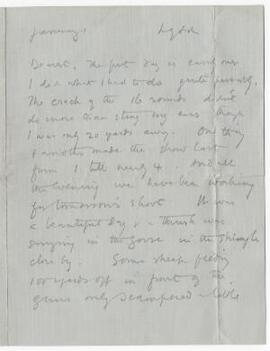 January 1 Lydd
Dearest, The first day is easily over
I did what I had to do quite passably.
The crack of the 16 rounds didn't
do more than sting my ears though
I was only 20 yards away. One thing
& another made the show last
from 1 till nearly 4. And all
the evening we have been working
for tomorrow's shoot. It was
a beautiful day & a thrush was
singing in the gorse in the shingle
close by. Some sheep feeding
100 yards off in front of the
guns only scampered a little